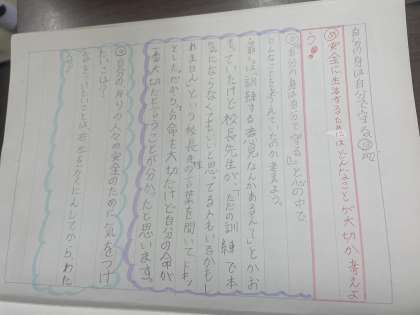 自分の身は自分で守る
め 安全に生活するためには、どんなことが大切か考えよ
う。
自分の身は自分で守る」と心の中で
どんなことを考えていたのか考えよう。
訓練する意見なんかあるんだ」とかお
もっていたけど校長先生が、「ただの訓練で本
気にならなくてもいいと思ってる人もいるかもし
れません」という校長先生の言葉を聞いて、
としたから、命を大切だけど自分の命が一
番大切だということが分かったと思います。
自分の身の周りの人々の安全のために気をつけ
たいことは?
気をつけたいことは、左右をかくにんしてからわた